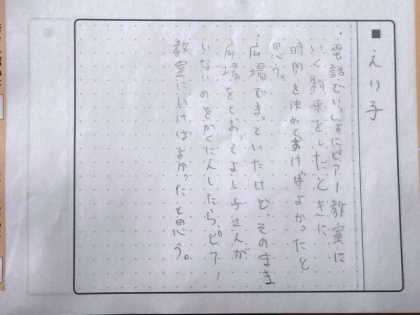 ■ えり子
・電話でいっしょにピアノ教室に
いく約束をしたときに
時間を決めておけばよかったと
思う。
・広場でまっていたけど、そのまま
広場をとおってよし子さんが
いないのをかくにんしたら、ピアノ
教室にいけばよかったと思う。